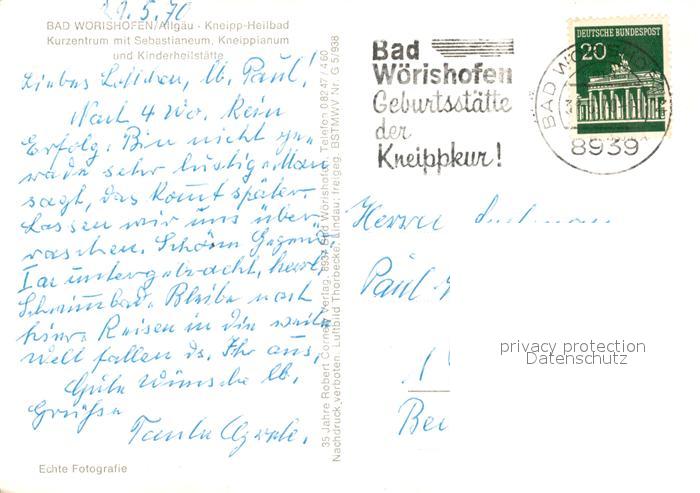 29.5.70
BAD WÖRISHOFEN/Allgäu - Kneipp-Heilbad
Kurzentrum mit Sebastianeum, Kneippianum
und Kinderheilstätte
Paul!
Nach 4 Wo. kein
Erfolg. Bin nicht ge-
rade sehr lustig. Man
sagt, das kommt später.
Lassen wir uns über-
raschen. Schöne Gegend
untergebracht,
Schwimmbad. Bleibe noch
hier. Reisen in die weite
Welt fallen ds. Jhr aus,
Gute Wünsche lb.
Grüße
Tante
Echte Fotografie
35 Jahre Robert Cornely Verlag, 8939 Bad Wörishofen, Telefon 08247/460
Nachdruck verboten. Luftbild Thorbecke, Lindau, freigeg. BSTMWV Nr. G 5/938
Bad
Wörishofen
Geburtsstätte
der
Kneippkur!
DEUTSCHE BUNDESPOST
20
BAD WÖ
8939
Herrn
Paul
privacy protection
Datenschutz